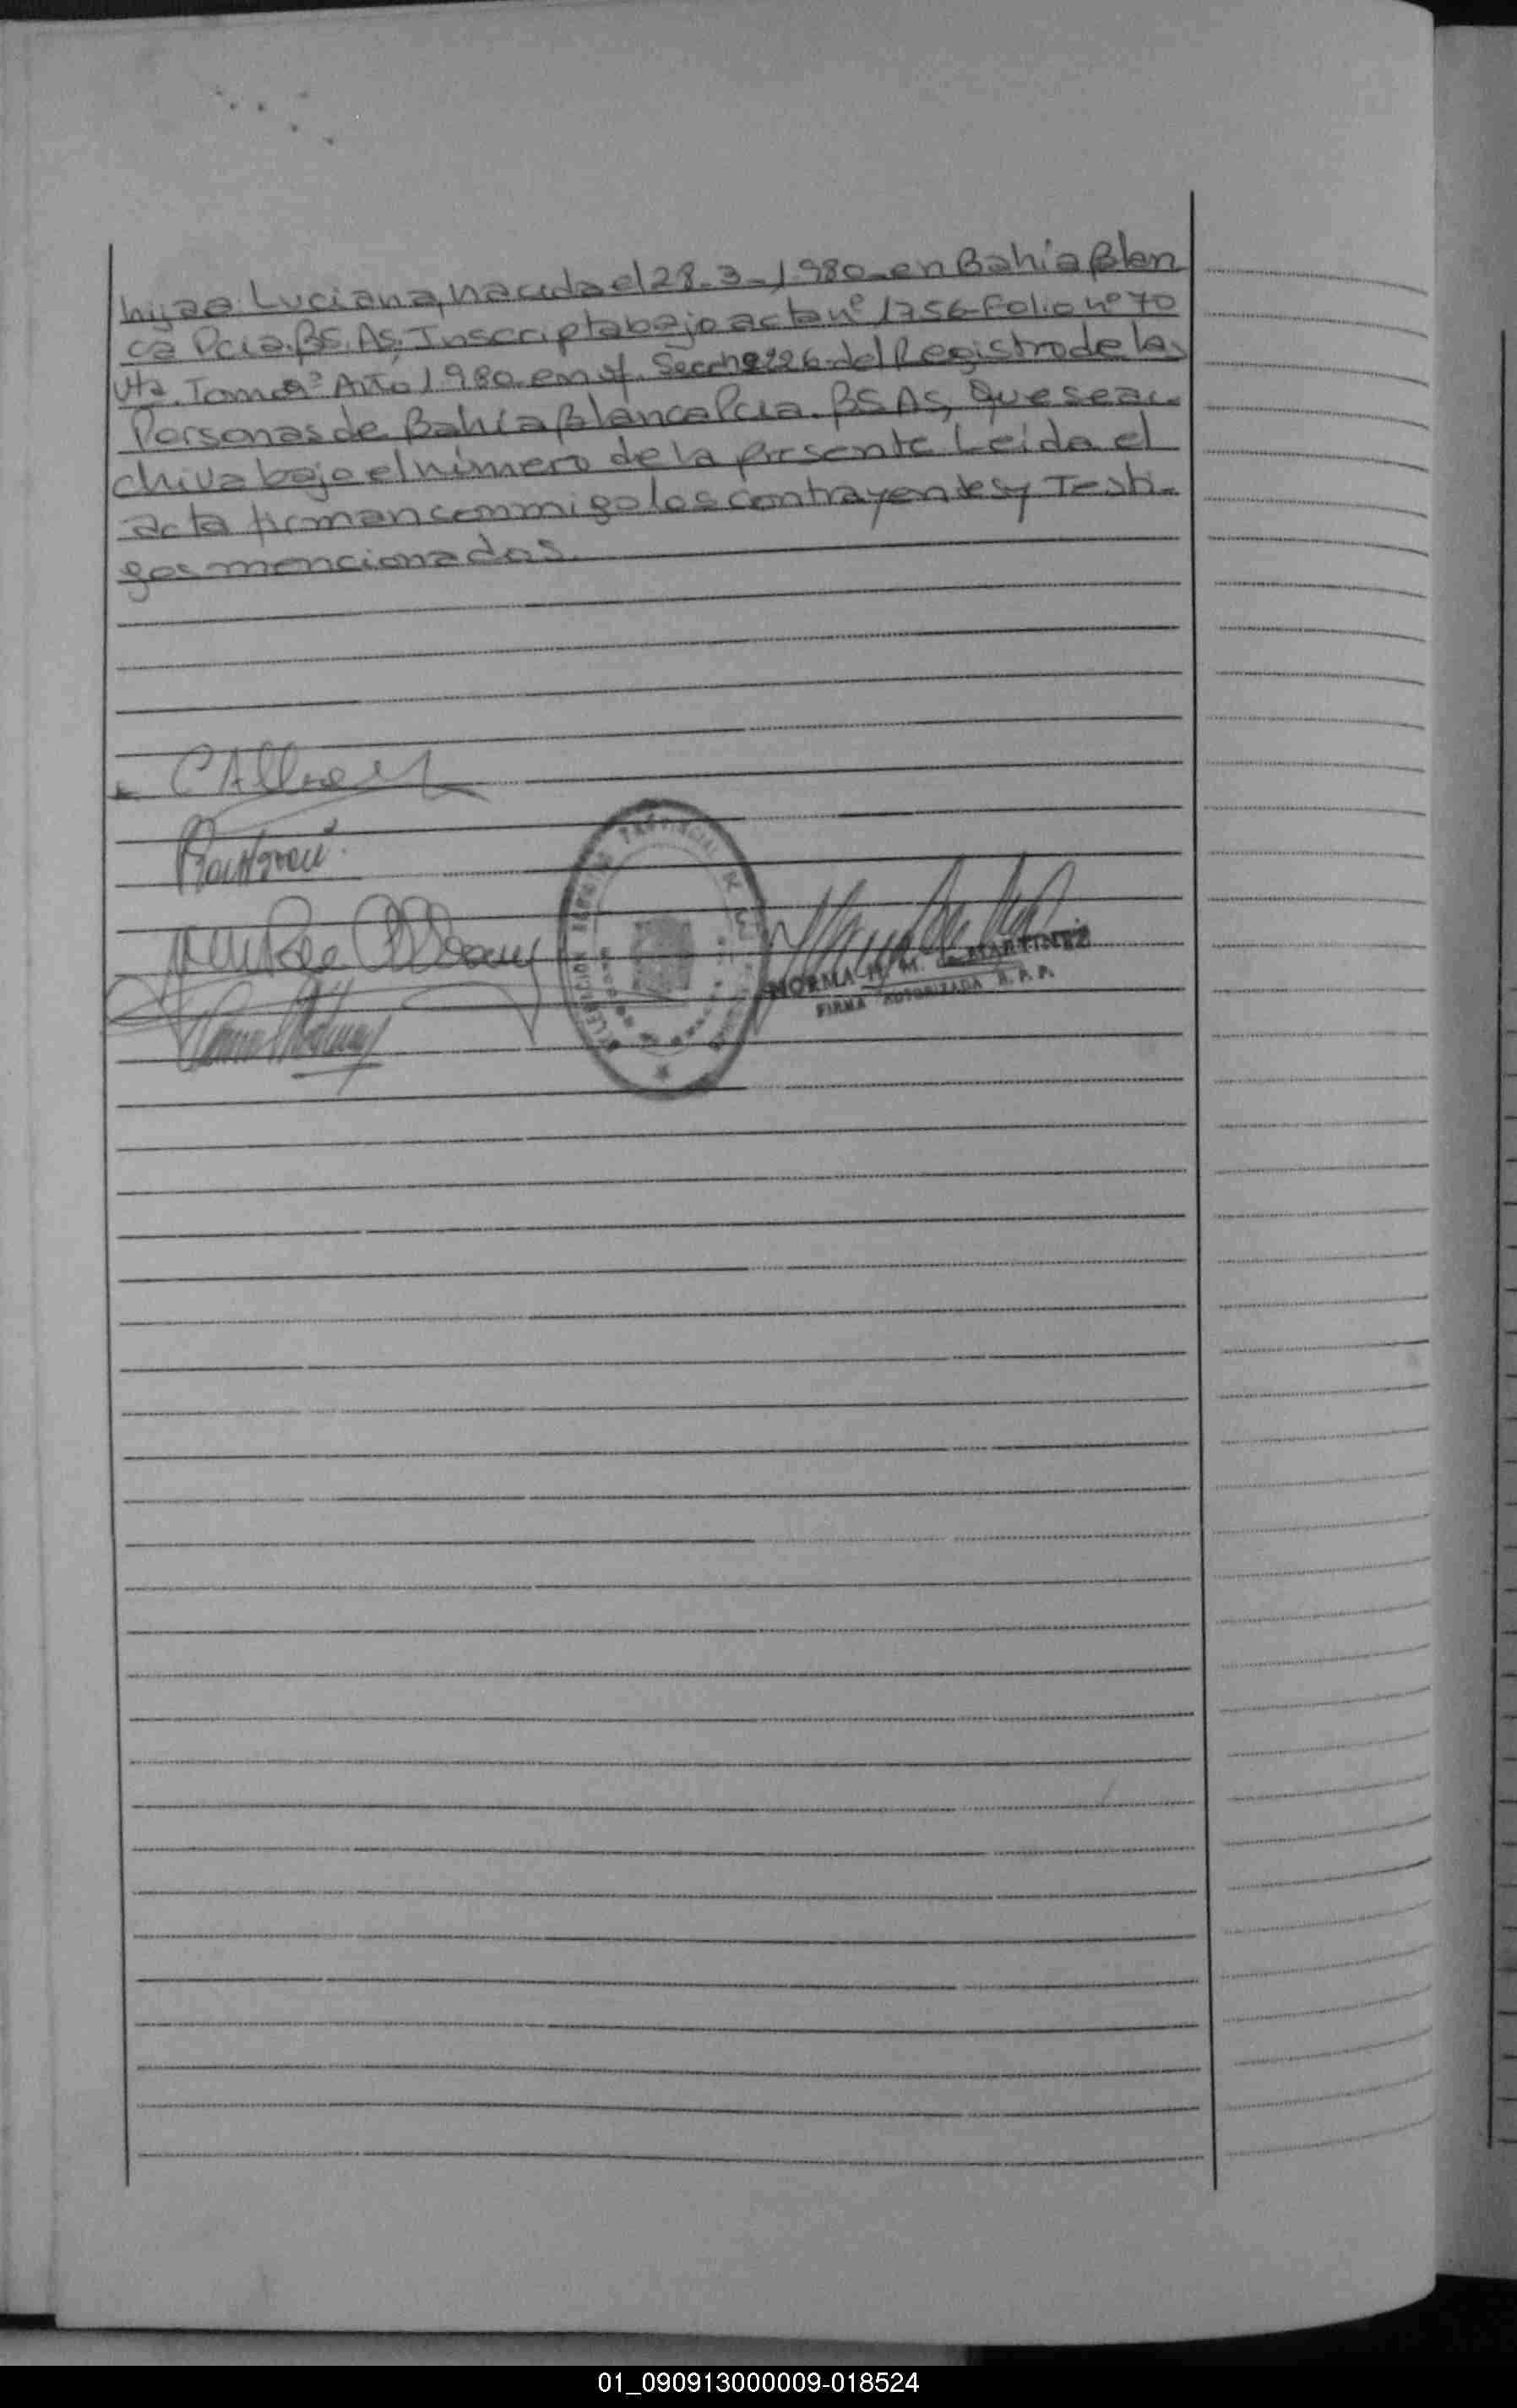 hija a: Luciana, nacida el 28-3-1980-en Bahía Blan
ca Pcia. BS. AS, Inscripta bajo acta nº 1756-Folio nº 70
Vta. Tomo Año 1980 en of. Secc del Registro de las
Personas de Bahía Blanca Pcia. BS AS, Que se ar-
chiva bajo el número de la presente. Leida el
acta firman conmigo los contrayentes y Testi-
gos mencionados.
NORMA M. de MARTINEZ
FIRMA AUTORIZADA
01_090913000009-018524